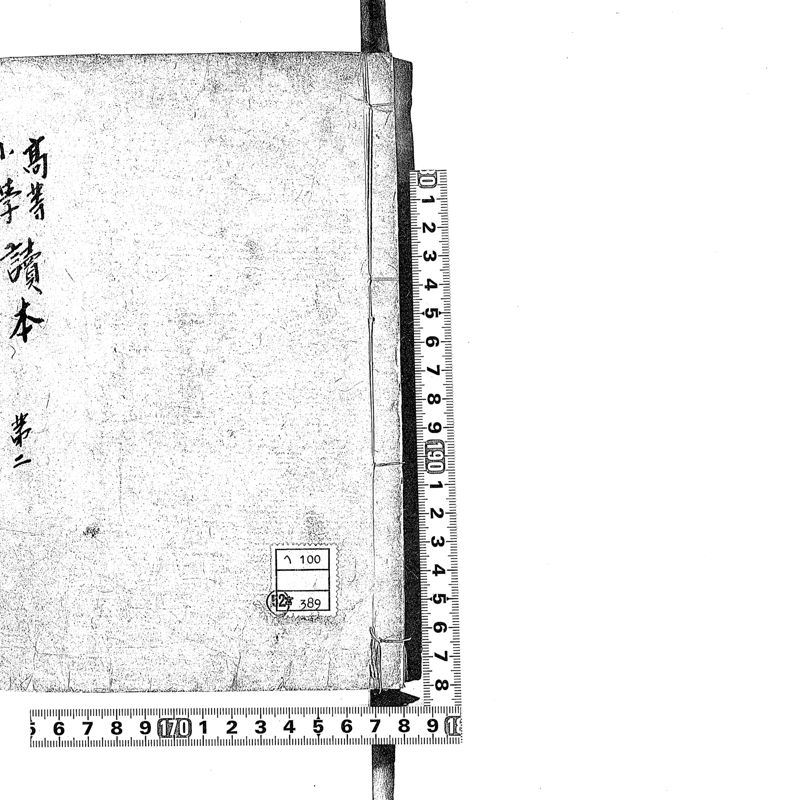 高等
小学
讀本
第二
ヘ 100
52
389
0 1 2 3 4 5 6 7 8 9 190 1 2 3 4 5 6 7 8
5 6 7 8 9 170 1 2 3 4 5 6 7 8 9 18